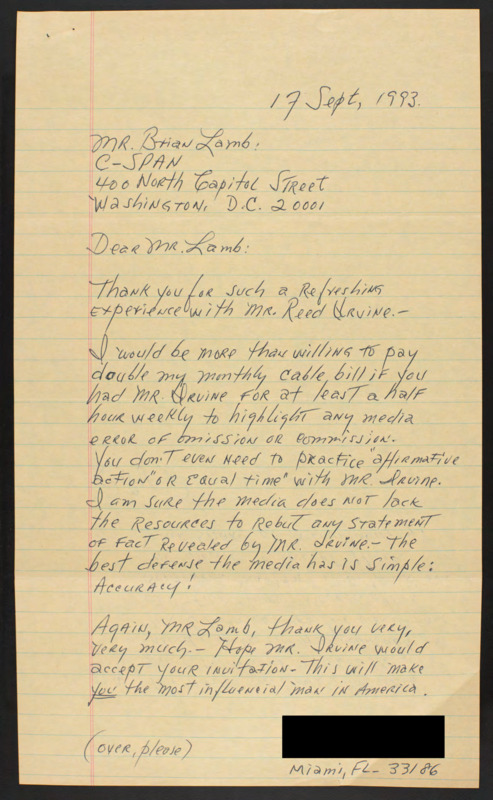 17 Sept, 1993.
Mr. Brian Lamb:
C-SPAN
400 North Capitol Street
Washington, D.C. 20001
Dear Mr. Lamb:
Thank you for such a refreshing
experience with Mr. Reed Irvine.-
I would be more than willing to pay
double my monthly cable bill if you
had Mr. Irvine for at least a half
hour weekly to highlight any media
error of omission or commission.
You don't even need to practice "affirmative
action" or equal time" with Mr. Irvine.
I am sure the media does not lack
the resources to robut any statement
of fact revealed by Mr. Irvine.- The
best defense the media has is simple:
Accuracy!
Again, Mr Lamb, thank you very,
very much.- Hope Mr. Irvine would
accept your invitation- This will make
you the most influencial man in America.
(over, please)
Miami, FL- 33186